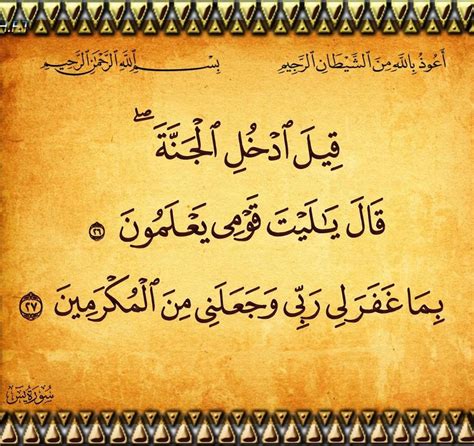 أَعُوذُ بِاللَّهِ مِنَ الشَّيْطَانِ الرَّجِيمِ بِسْمِ ٱللَّهِ ٱلرَّحْمَٰنِ ٱلرَّحِيمِ
قِيلَ ٱدْخُلِ ٱلْجَنَّةَ ۖ
قَالَ يَٰلَيْتَ قَوْمِى يَعْلَمُونَ ٢٦
بِمَا غَفَرَ لِى رَبِّى وَجَعَلَنِى مِنَ ٱلْمُكْرَمِينَ ٢٧
سُورَةُ يس